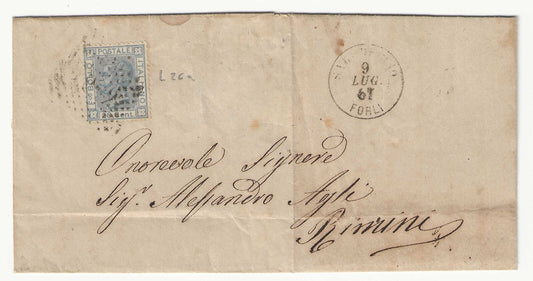 BOLLO POSTALE ITALIANO
20 CENT
L 26
9
LUG.
67
FORLI
Onorevole Signore
Sig.r Alessandro Agli
Rimini